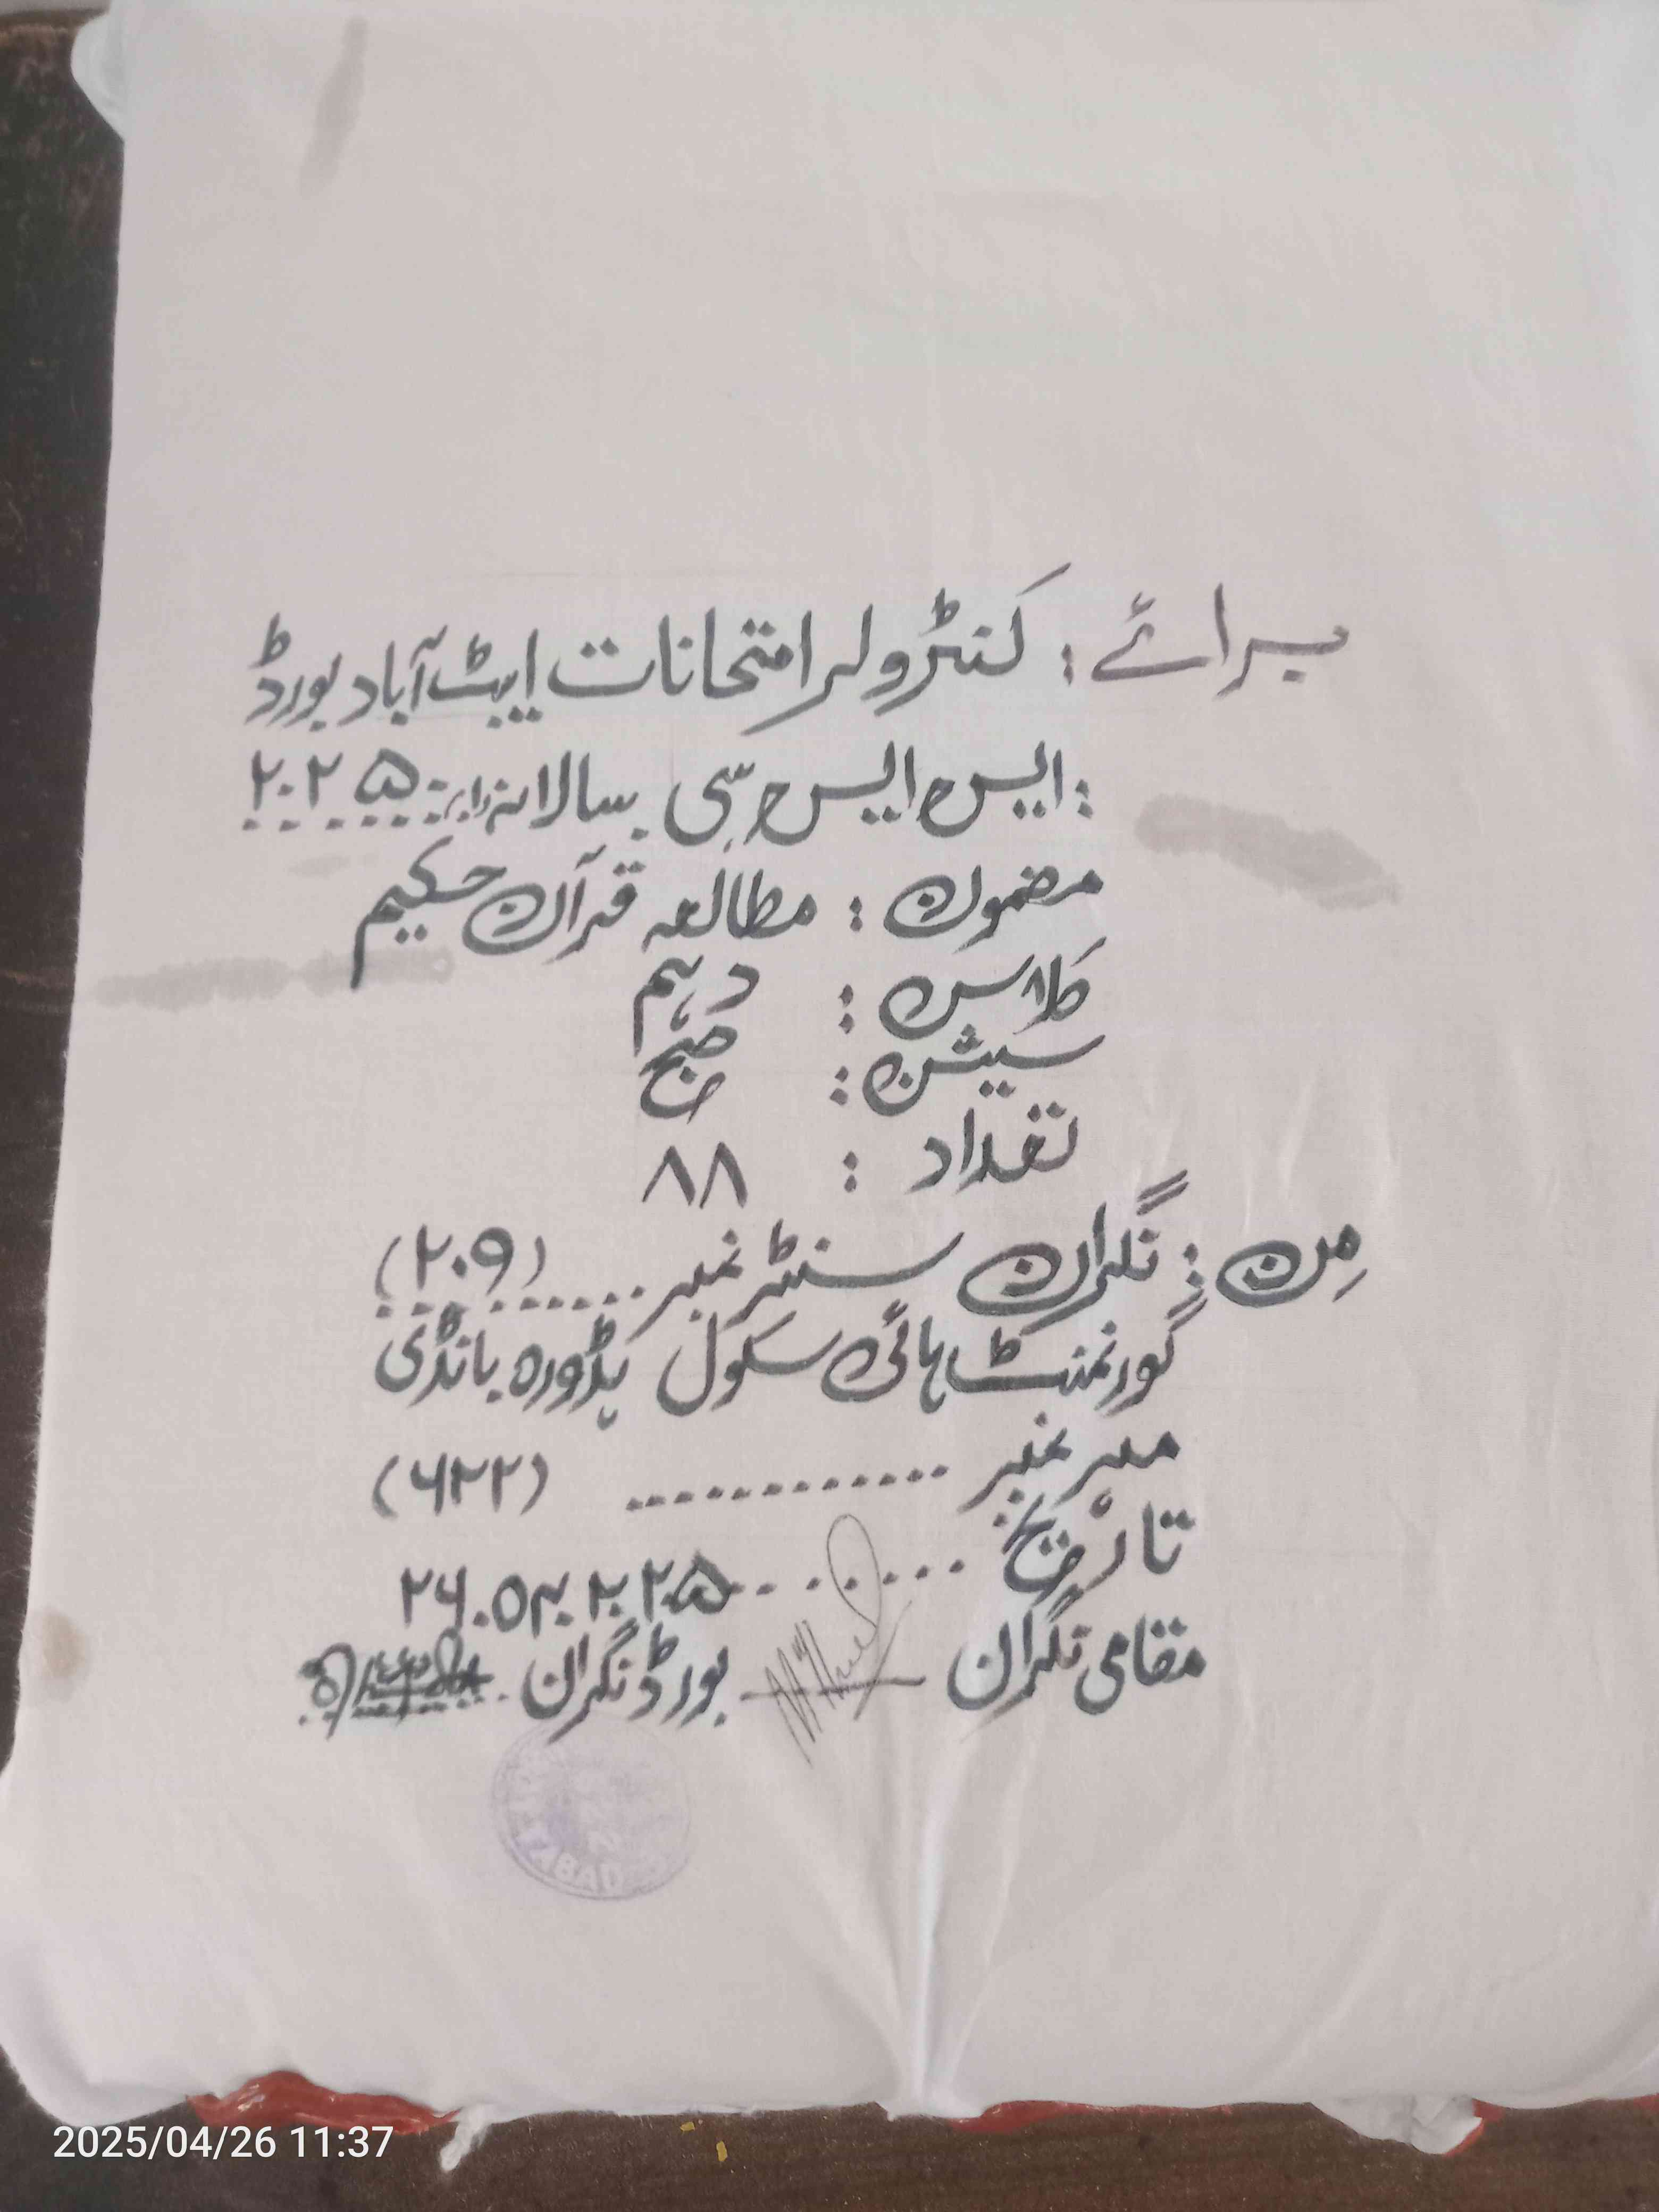 برائے : کنٹرولر امتحانات ایبٹ آباد بورڈ
: ایس ایس سی سالانہ ۲۰۲۵
مضمون : مطالعہ قرآن حکیم
کلاس : دہم
سیشن : صبح
تعداد : ۸۸
مِن : نگران سنٹر نمبر ........ (۲۰۹)
گورنمنٹ ہائی سکول پڈورہ بانڈی
مہر نمبر ............ (۶۲۲)
تاریخ
مقامی نگران بورڈ نگران
ABAD
2025/04/26 11:37